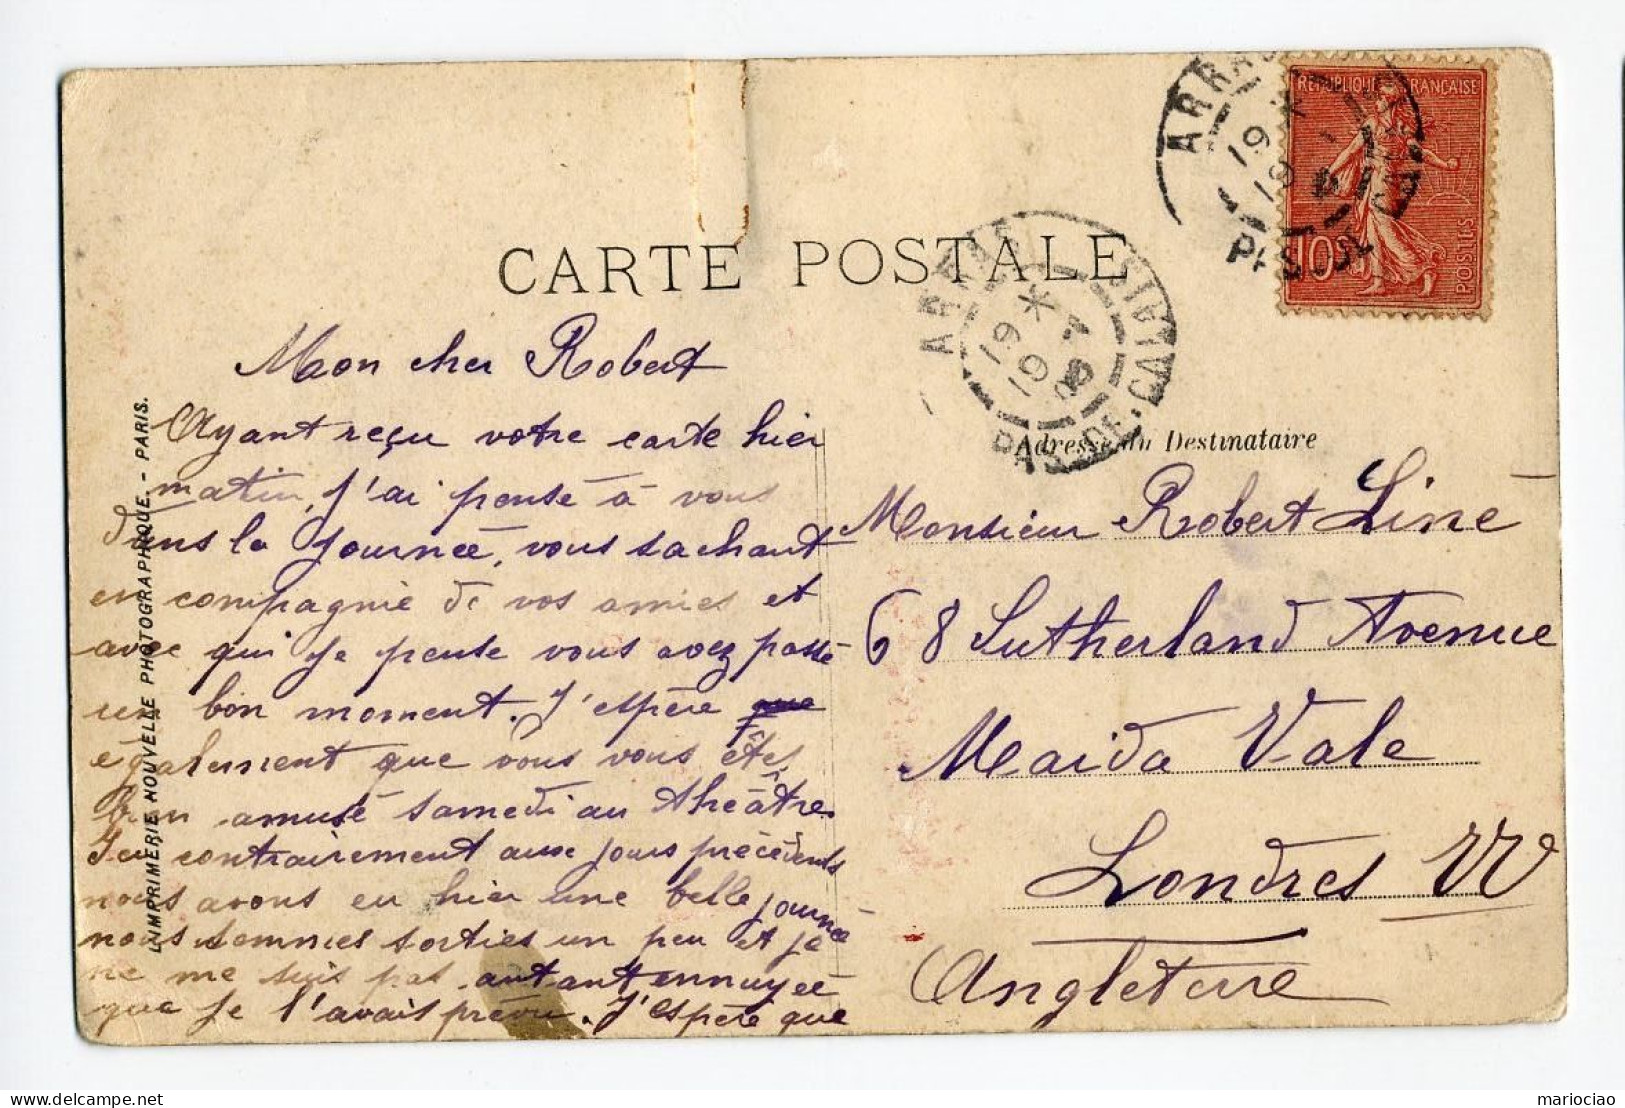 CARTE POSTALE
REPUBLIQUE FRANÇAISE
10c
POSTES
ARRAS
PAS-DE-CALAIS
ARRAS
PAS-DE-CALAIS
Adresse du Destinataire
L'IMPRIMERIE NOUVELLE PHOTOGRAPHIQUE. - PARIS.
Mon cher Robert
Ayant reçu votre carte hier
matin, j'ai pensé à vous
dans la journée, vous sachant
en compagnie de vos amies et
avec qui je pense vous avez passé
un bon moment. J'espère
également que vous vous êtes
bien amusé samedi au théâtre.
Ici contrairement aux jours précédents
nous avons eu hier une belle journée
nous sommes sorties un peu et je
ne me suis pas autant ennuyée
que je l'avais prévu. J'espère que
Monsieur Robert Liné
68 Sutherland Avenue
Maida Vale
Londres W
Angleterre
mariociao